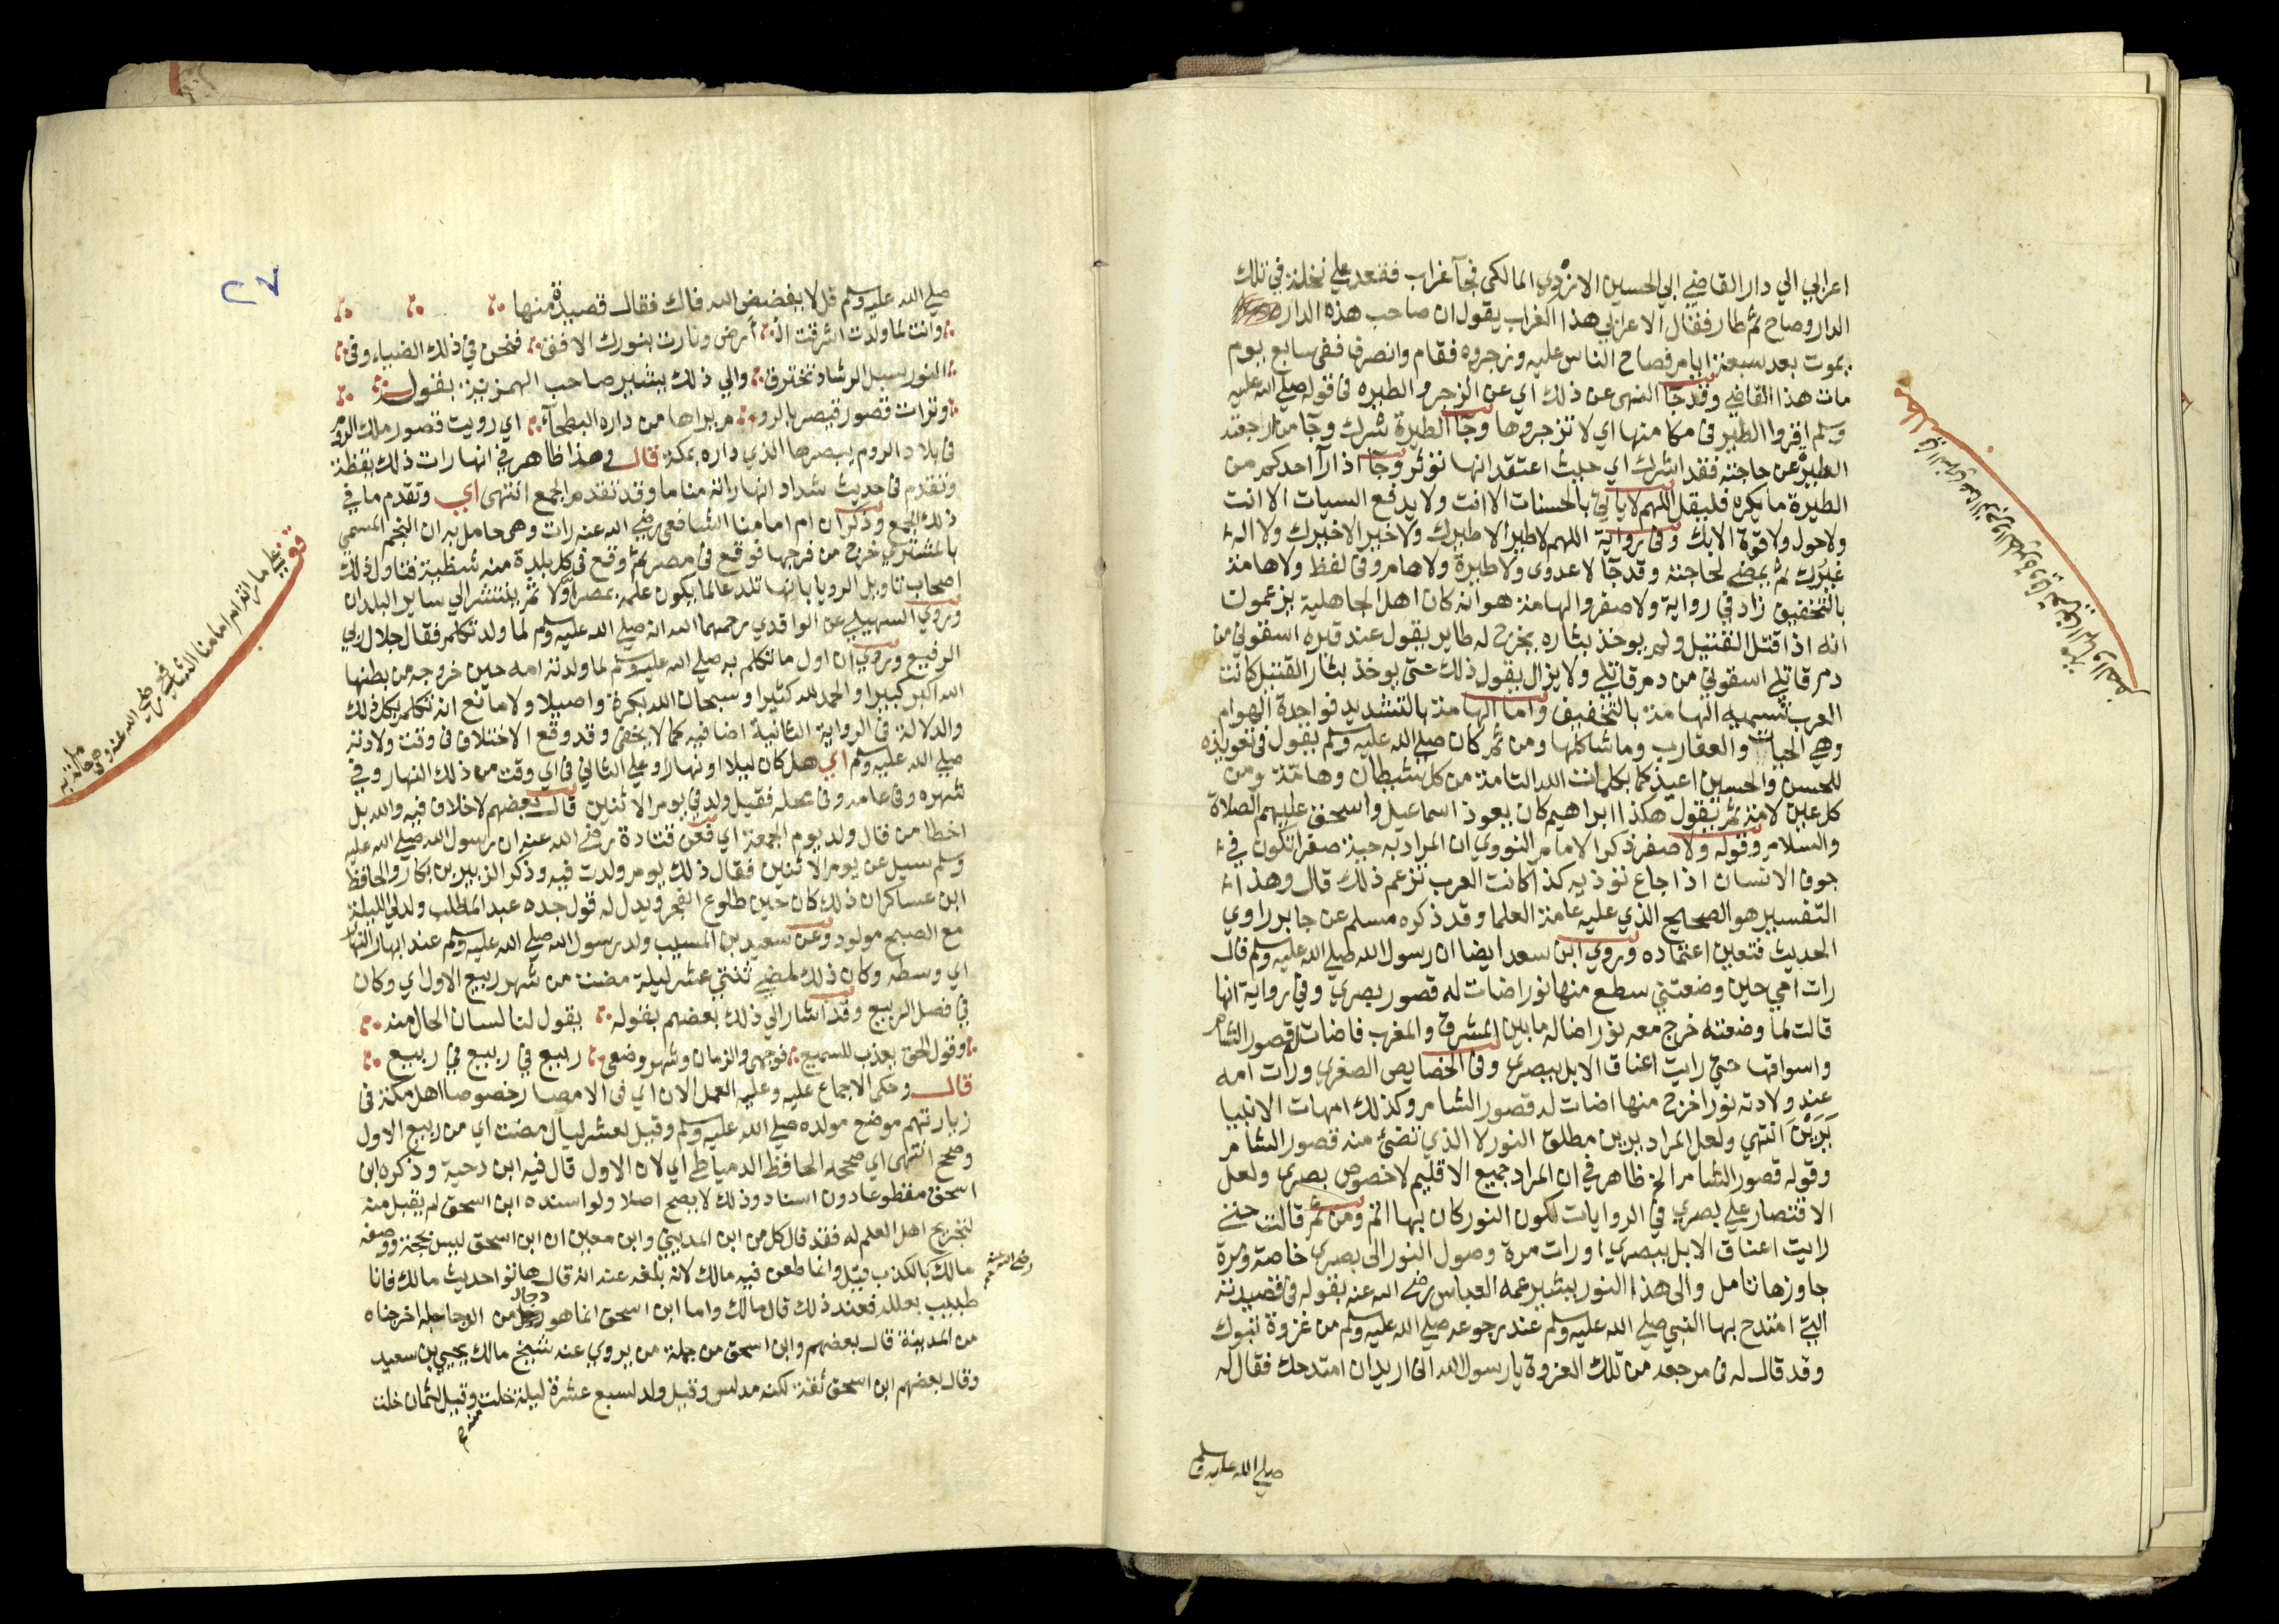 اعرابي الي دار القاضي ابي الحسين الازدي المالكي فجآ غراب فقعد علي نخلة في تلك
الدار وصاح ثم طار فقال الاعرابي هذا الغراب يقول ان صاحب هذه الدار
يموت بعد سبعة ايام فصاح الناس عليه وزجروه فقام وانصرف ففي سابع يوم
مات هذا القاضي وقد جآ النهي عن ذلك اي عن الزجر والطيره في قوله صلي الله عليه
وسلم اقروا الطير في مكامنها اي لا تزجروها وجآ الطيرة شرك وجآ من ارجعته
الطيرة عن حاجته فقد اشرك اي حيث اعتقد انها تؤثر وجآ اذا رآ احدكم من
الطيرة ما يكره فليقل اللهم لا ياتي بالحسنات الا انت ولا يدفع السيات الا انت
ولا حول ولا قوة الا بك وفي رواية اللهم لا طير الا طيرك ولا خير الا خيرك ولا اله
غيرك ثم يمضي لحاجته وقد جآ لا عدوى ولا طيرة ولا هام وفي لفظ ولا هامة
بالتخفيف زاد في رواية ولا صفر والهامة هو انه كان اهل الجاهلية يزعمون
انه اذا قتل القتيل ولم يوخذ بثاره يخرج له طاير يقول عند قبره اسقوني من
دم قاتلي اسقوني من دم قاتلي ولا يزال يقول ذلك حتي يوخذ بثار القتيل كانت
العرب تسميه الهامة بالتخفيف واما الهامة بالتشديد فواحدة الهوام
وهي الحيات والعقارب وما شاكلها ومن ثم كان صلي الله عليه وسلم يقول في تعويذه
للحسن والحسين اعيذكما بكلمات الله التامة من كل شيطان وهامة ومن
كل عين لامة ثم يقول هكذا ابراهيم كان يعوذ اسماعيل واسحق عليهم الصلاة
والسلام وقوله ولا صفر ذكر الامام النووي ان المراد به حية صفرا تكون في
جوف الانسان اذا جاع توذيه كذا كانت العرب تزعم ذلك قال وهذا
التفسير هو الصحيح الذي عليه عامة العلما وقد ذكره مسلم عن جابر راوي
الحديث فتعين اعتماده وروي ابن سعد ايضا ان رسول الله صلي الله عليه وسلم قال
رات امي حين وضعتني سطع منها نور اضات له قصور بصري وفي رواية انها
قالت لما وضعته خرج معه نور اضا له ما بين المشرق والمغرب فاضات له قصور الشام
واسواقها حتي رايت اعناق الابل ببصري وفي الخصايص الصغري ورات امه
عند ولادته نورا خرج منها اضات له قصور الشام وكذلك امهات الانبيا
يَرَيْنَ انتهي ولعل المراد يرين مطلق النور لا الذي تضيء منه قصور الشام
وقوله قصور الشام الخ ظاهر في ان المراد جميع الاقليم لا خصوص بصري ولعل
الاقتصار علي بصري في الروايات لكون النور كان بها اتم ومن ثم قالت حتي
رايت اعناق الابل ببصري او رات مرة وصول النور الي بصري خاصة ومرة
جاوزها تامل والي هذا النور يشير عمه العباس رضي الله عنه بقوله في قصيدته
التي امتدح بها النبي صلي الله عليه وسلم عند رجوعه صلي الله عليه وسلم من غزوة تبوك
وقد قال له في مرجعه من تلك الغزوة يا رسول الله اني اريد ان امتدحك فقال له
صلي الله عليه وسلم
٢٧
صلي الله عليه وسلم قل لا يفضض الله فاك فقال قصيدة منها
وانت لما ولدت اشرقت الأرض ونارت بنورك الافق فنحن في ذلك الضياء وفي
النور سبل الرشاد تخترق والي ذلك يشير صاحب الهمزية بقوله
وترات قصور قيصر بالروم يراها من داره البطحآء اي رويت قصور ملك الروم
في بلاد الروم يبصرها الذي داره بمكة قال وهذا ظاهر في انها رات ذلك يقظة
وتقدم في حديث شداد انها راته مناما وقد تقدم الجمع انتهي اي وتقدم ما في
ذلك الجمع وذكر ان ام امامنا الشافعي رضي الله عنه رات وهي حامل به ان النجم المسمي
بالمشتري خرج من فرجها فوقع في مصر ثم وقع في كل بلدة منه شظية فتاول ذلك
اصحاب تاويل الرويا بانها تلد عالما يكون علمه بمصر اولا ثم ينتشر الي ساير البلدان
وروي السهيلي عن الواقدي رحمهما الله انه صلي الله عليه وسلم لما ولد تكلم فقال جلال ربي
الرفيع وروي ان اول ما تكلم به صلي الله عليه وسلم لما ولدته امه حين خروجه من بطنها
الله اكبر كبيرا والحمد لله كثيرا وسبحان الله بكرة واصيلا ولا مانع انه تكلم بكل ذلك
والدلالة في الرواية الثانية اضافيه كما لا يخفي وقد وقع الاختلاف في وقت ولادته
صلي الله عليه وسلم اي هل كان ليلا او نهارا وعلي الثاني في اي وقت من ذلك النهار وفي
شهره وفي عامه وفي محله فقيل ولد في يوم الاثنين قال بعضهم لا خلاف فيه والله بل
اخطا من قال ولد يوم الجمعة اي فعن قتادة رضي الله عنه ان رسول الله صلي الله عليه
وسلم سيل عن يوم الاثنين فقال ذلك يوم ولدت فيه وذكر الزبير بن بكار والحافظ
ابن عساكر ان ذلك كان حين طلوع الفجر ويدل له قول جده عبد المطلب ولد لي الليلة
مع الصبح مولود وعن سعيد بن المسيب ولد رسول الله صلي الله عليه وسلم عند ابهار النهار
اي وسطه وكان ذلك لمضي ثنتي عشر ليلة مضت من شهر ربيع الاول اي وكان
في فصل الربيع وقد اشار الي ذلك بعضهم بقوله يقول لنا لسان الحال منه
وقول الحق يعذب للسميع فوجهي والزمان وشهر وضعي ربيع في ربيع في ربيع
قال وحكي الاجماع عليه وعليه العمل الان اي في الامصار خصوصا اهل مكة في
زيارتهم موضع مولده صلي الله عليه وسلم وقيل لعشر ليال مضت اي من ربيع الاول
وصحح انتهي اي صححه الحافظ الدمياطي اي لان الاول قال فيه ابن دحية وذكره ابن
اسحق مقطوعا دون اسناد وذلك لا يصح اصلا ولو اسنده ابن اسحق لم يقبل منه
لتجريح اهل العلم له فقد قال كل من ابن المديني وابن معين ان ابن اسحق ليس بحجة ووصفه
مالك بالكذب قيل وانما طعن فيه مالك لانه بلغه عنه انه قال هاتوا حديث مالك فانا
رضي الله عنه
طبيب بعلله فعند ذلك قال مالك واما ابن اسحق انما هو دجال من الدجاجلة اخرجناه
من المدينة قال بعضهم وابن اسحق من جملة من يروي عنه شيخ مالك يحيي بن سعيد
وقال بعضهم ابن اسحق ثقة لكنه مدلس وقيل ولد لسبع عشرة ليلة خلت وقيل لثمان خلت
منه
قف علي ما راته ام امامنا الشافعي رضي الله عنه وهي حاملة به